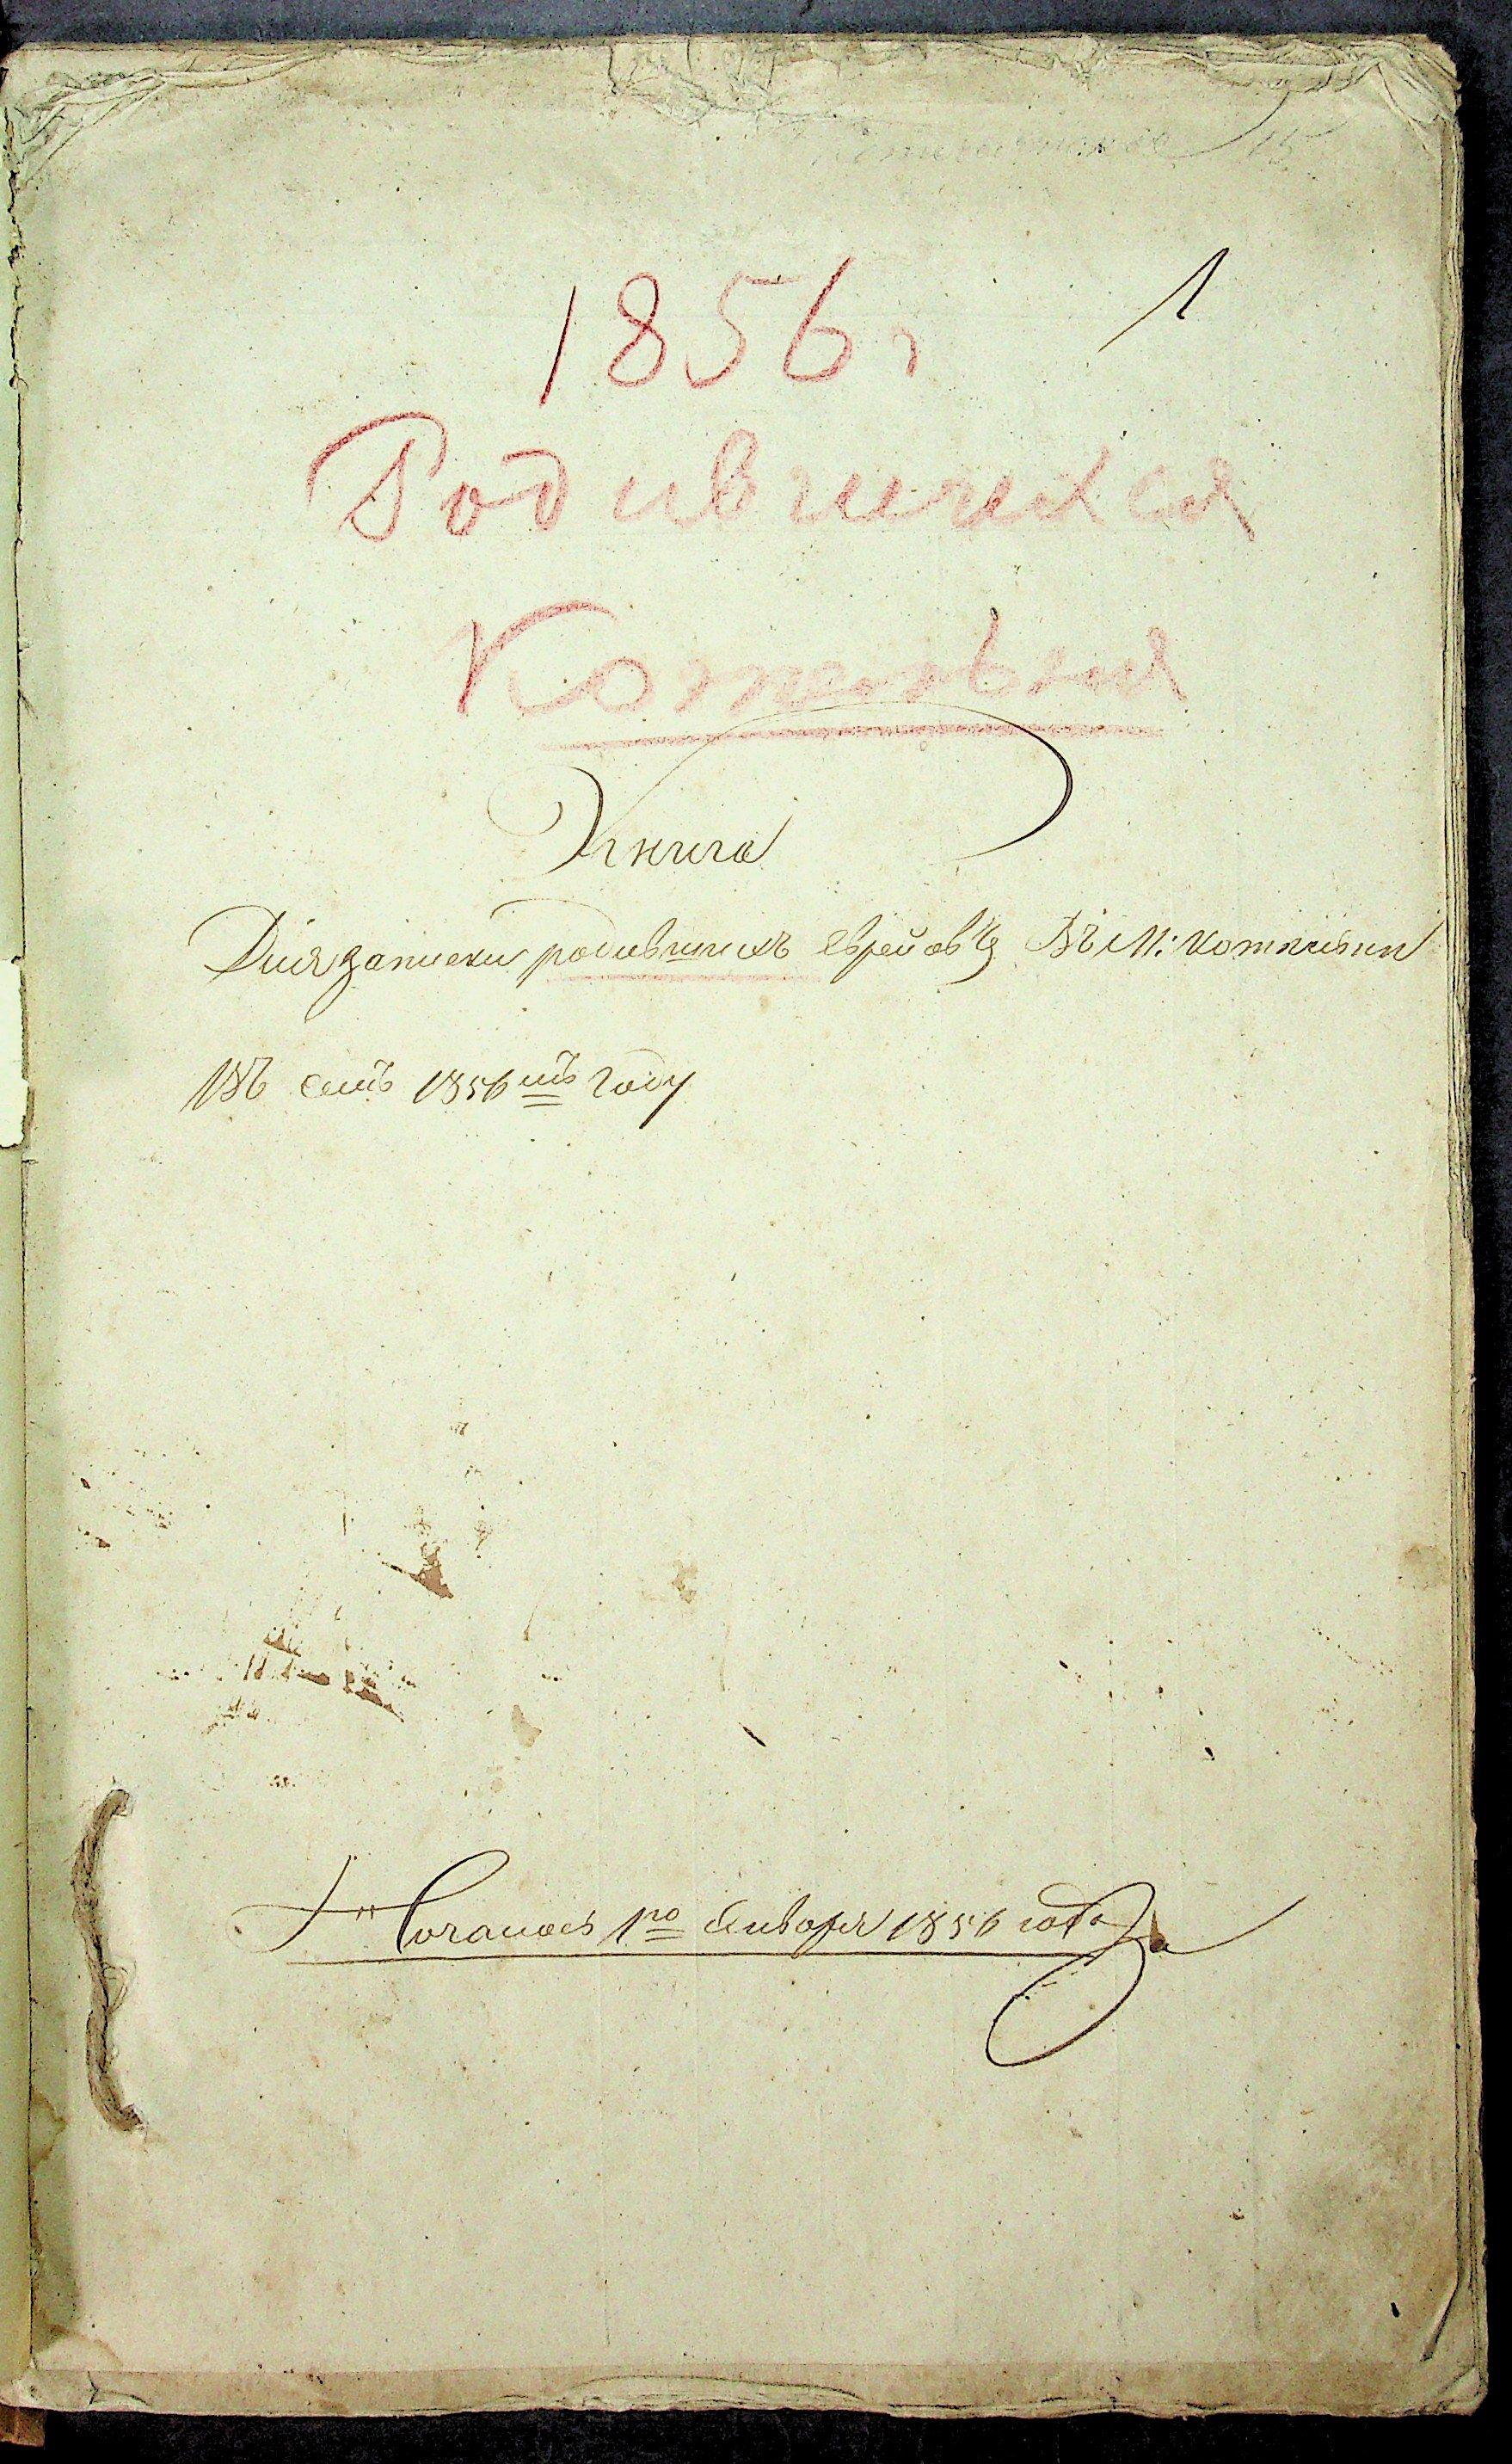 15
1
1856 г
Родившихся
Котельня
Книга
Для записки родившихъ евреовъ Въ М: Котельни
Въ семъ 1856мъ году
Началась 1го Января 1856 года